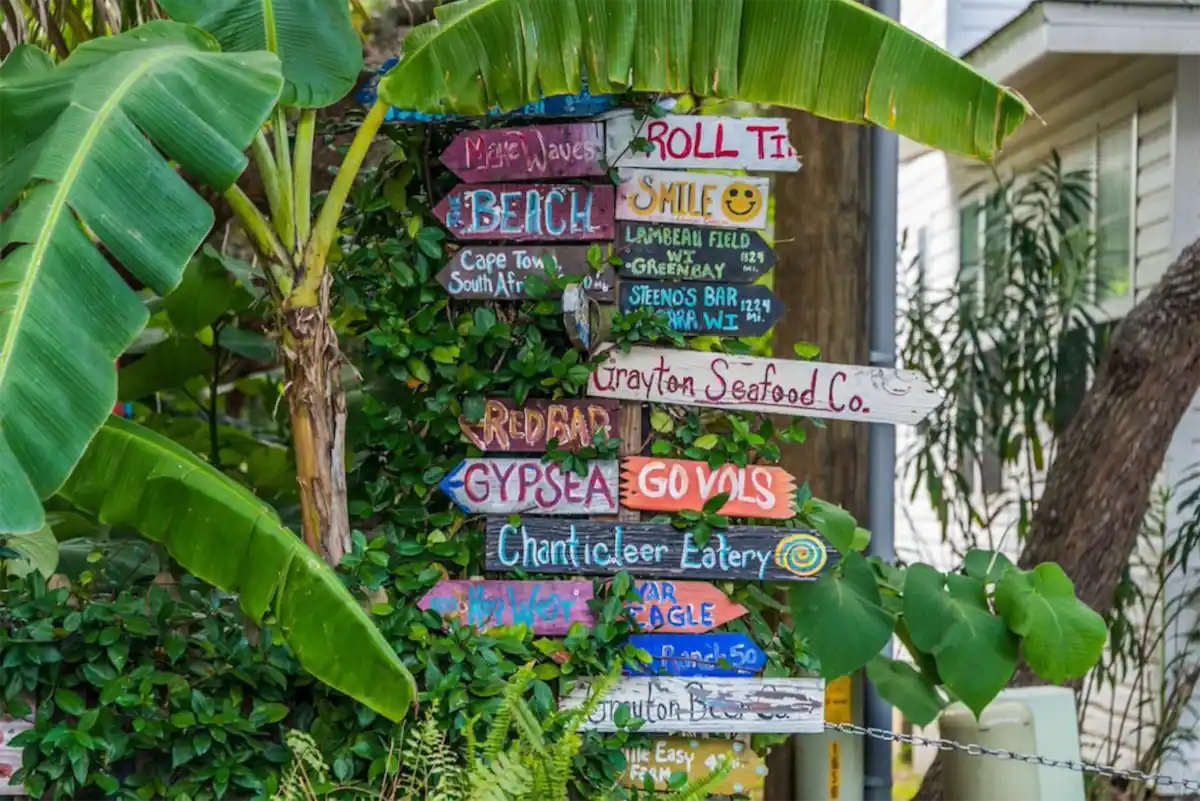 Make Waves
ROLL TI
THE BEACH
SMILE
Cape Town
South Afri
LAMBEAU FIELD
WI 1129
GREENBAY MI.
STEENO'S BAR 1224
ARA WI MI.
Grayton Seafood Co.
REDBAR
GYPSEA
GO VOLS
Chanticleer Eatery
Key West
WAR
EAGLE
Ranch 50
Grayton Beer Co.
ile Easy
FARM